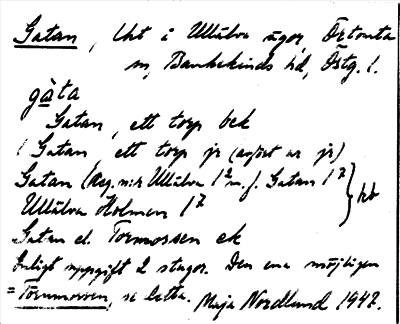 Gatan, lht å Ullälva ägor, Örtomta
sn, Bankekinds hd, Östg. l.
gàta
Gatan, ett torp bek
Gatan ett torp jr (avfört ur jr)
Gatan (Reg. nr Ullälva 1² m. f. Gatan 1⁷
Ullälva Holmen 1⁷ } hb
Gatan el. Tormossen ek
Enligt uppgift 2 stugor. Den ena möjligen
= Torvmossen, se detta. Maja Nordlund 1947.